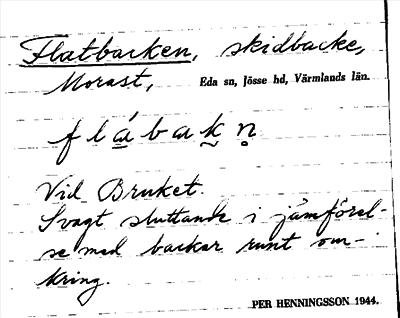 Flatbacken, skidbacke,
Morast, Eda sn, Jösse hd, Värmlands län.
f l á b a k n
Vid Bruket.
Svagt sluttande i jämförel-
se med backar runt om-
kring.
PER HENNINGSSON 1944.